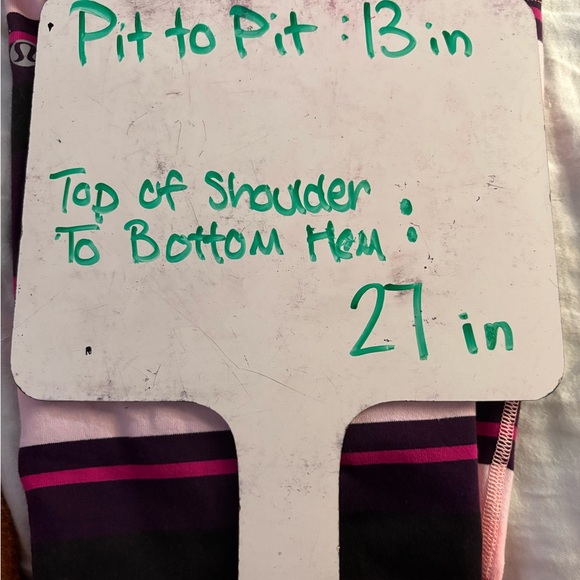 Pit to Pit : 13 in
Top of Shoulder :
To Bottom Hem :
27 in